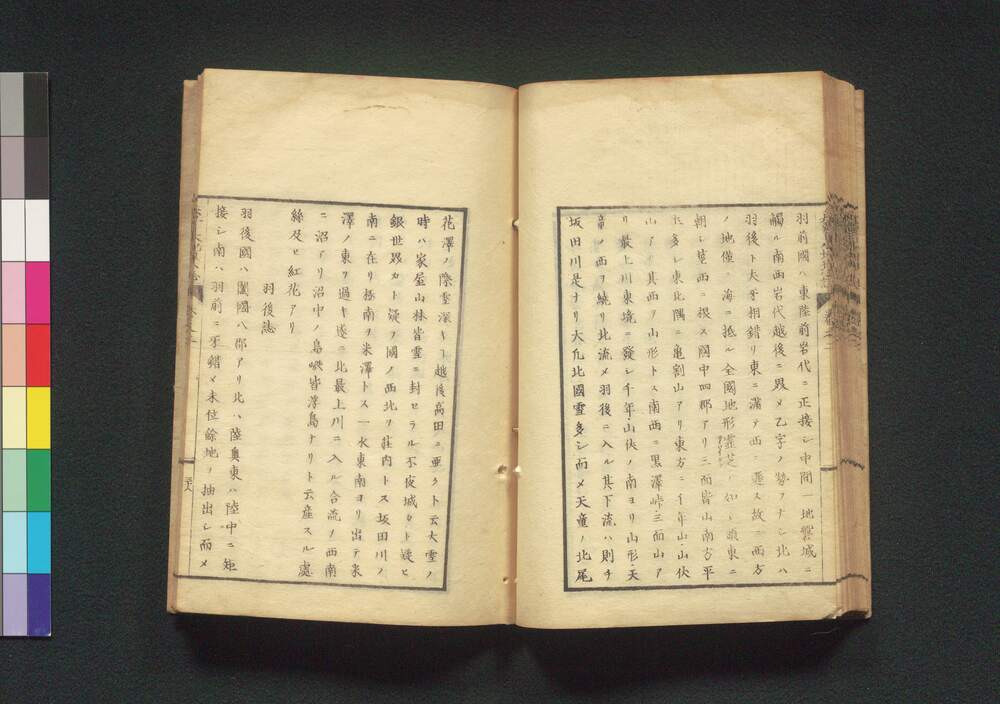 羽前國ハ東陸前岩代ニ正接シ中間一地磐城ニ
觸ル南西岩代越後ニ界メ乙字ノ勢ヲナシ北ハ
羽後ト犬牙相錯リ東ニ滿テ西ニ遷ス故ニ西方
ノ地僅ノ海ニ抵ル全國地形靈芝ノ如シ頭東ニ
朝シ莖西ニ根ス國中四郡アリ三面皆山南方平
丘多シ東北隅ニ亀割山アリ東方ニ千年山山伏
山アリ其西ヲ山形トス南西ニ黒澤峠三面山ア
リ最上川東境ニ發シ千年山伏ノ南ヨリ山形天
童ノ西ヲ繞リ北流メ羽後ニ入ル其下流ハ則チ
坂田川是ナリ大凢北國雪多シ而メ天童ノ北尾
花澤ノ際雪深キヿ越後高田ニ亜クト云大雪ノ
時ハ家屋山林皆雪ニ封セラル不夜城カト疑ヒ
銀世界カト疑フ國ノ西北ヲ莊内トス坂田川ノ
南ニ在リ極南ヲ米澤トス一水東南ヨリ出テ米
澤ノ東ヲ過キ遂ニ北最上川ニ入ル合流ノ西南
ニ沼アリ沼中ノ島嶼皆浮島ナリト云産スル處
絲及ヒ紅花アリ
羽後志
羽後國ハ闔國八郡アリ北ハ陸奥東ハ陸中ニ矩
接シ南ハ羽前ニ牙錯メ未位餘地ヲ抽出シ而メ